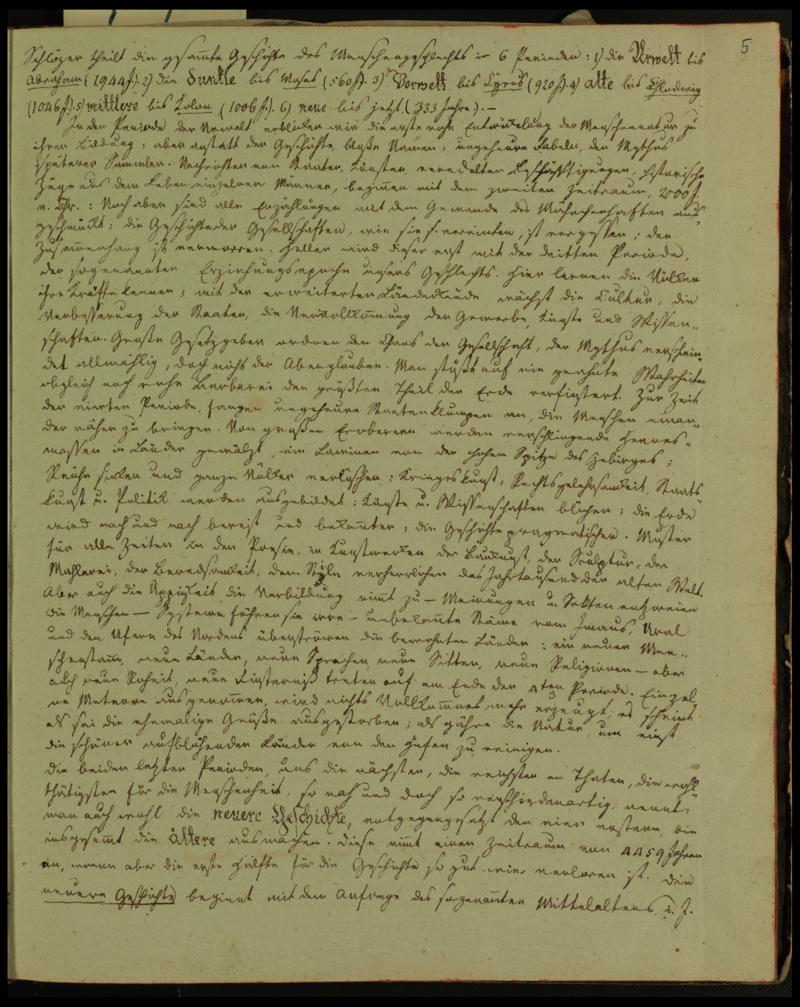 5
Schlözer theilt die gesamte Geschichte des Menschengeschlechts in 6 Perioden: 1) die Urwelt bis
Abraham (1944 J.) 2) die Dunkle bis Moses (560 J.) 3) Vorwelt bis Cyrus (920 J.) 4) alte bis Chlodwig
(1046 J.) 5) mittlere bis Colon (1006 J.) 6) neue bis jetzt (333 Jahre). —
In der Periode der Urwelt erblicken wir die erste rohe Entwickelung der Menschennatur zu
ihrer Bildung; aber anstatt der Geschichte, bloße Namen, ungeheure Fabeln, den Mythus
späterer Sammler. Nachrichten von Staaten, Künsten, veredelten Beschäftigungen, historische
Züge aus dem Leben einzelner Männer, beginnen mit dem zweiten Zeitraum, 2000 J.
v. Chr.: Noch aber sind alle Erzählungen mit dem Gewande des Mährchenhaften aus-
geschmückt; die Geschichte der Gesellschaften, wie sie s. vereinten, ist vergessen; der
Zusammenhang ist verworren. Heller wird dieser erst mit der dritten Periode,
der sogenannten Erziehungsepoche unsers Geschlechts. Hier lernen die Völker
ihre Kräfte kennen; mit der erweiterten Länderkunde wächst die Cultur, die
Verbesserung der Staaten, die Vervollkommnung der Gewerbe, Künste und Wissen-
schaften. Große Gesetzgeber ordnen den Chaos der Gesellschaft, der Mythus verschwin-
det allmählig, doch nicht der Aberglauben. Man stößt auf nie geahnte Wahrheiten
obgleich noch rohe Barbarei den größten Theil der Erde verfinstert. Zur Zeit
der vierten Periode fangen ungeheure Staaten an, die Menschen einan-
der näher zu bringen. Von großen Eroberern werden verschlingende Heeres-
massen in Länder gewälzt, wie Lawinen von der hohen Spitze des Gebirges;
Reiche sinken und ganze Völker verlöschen; Kriegeskunst, Rechtsgelehrsamkeit, Staats-
kunst u. Politik werden ausgebildet; Künste u. Wissenschaften blühen; die Erde
wird nach und nach bereist und bekannter; die Geschichte pragmatischer. Muster
für alle Zeiten in der Poesie, in Kunstwerken der Baukunst, der Sculptur, der
Mahlerei, der Beredsamkeit, dem Style verherrlichen das Jahrtausend der alten Welt.
Aber auch die Üppigkeit die Verbildung nimt zu — Meinungen u. Sekten entzweien
die Menschen — Systeme führen sie irre — unbekannte Stämme vom Imaus, Ural
und den Ufern des Nordens überströmen die bewohnten Länder: ein neuer Men-
schenstamm, neue Länder, neue Sprachen, neue Sitten, neue Religionen — aber
auch neue Rohheit, neue Finsterniß treten auf am Ende der 4ten Periode. Einzel-
ne Meteore ausgenommen, wird nichts Vollkommnes mehr erzeugt; es scheint
als sei die ehemalige Größe ausgestorben; als gähre die Natur, um einst
die schöner aufblühenden Länder von den Hefen zu reinigen.
Die beiden letzten Perioden, uns die nächsten, die reichsten an Thaten, die wohl-
thätigsten für die Menschenheit, so nah und doch so verschiedenartig, nennt
man auch wohl die neuere Geschichte, entgegengesetzt den vier erstern, die
insgesamt die ältere ausmachen. Diese nimt einen Zeitraum von 4459 Jahren
ein, wovon aber die erste Hälfte für die Geschichte so gut wie verloren ist. Die
neuere Geschichte beginnt mit dem Anfange des sogenannten Mittelalters, i. J.